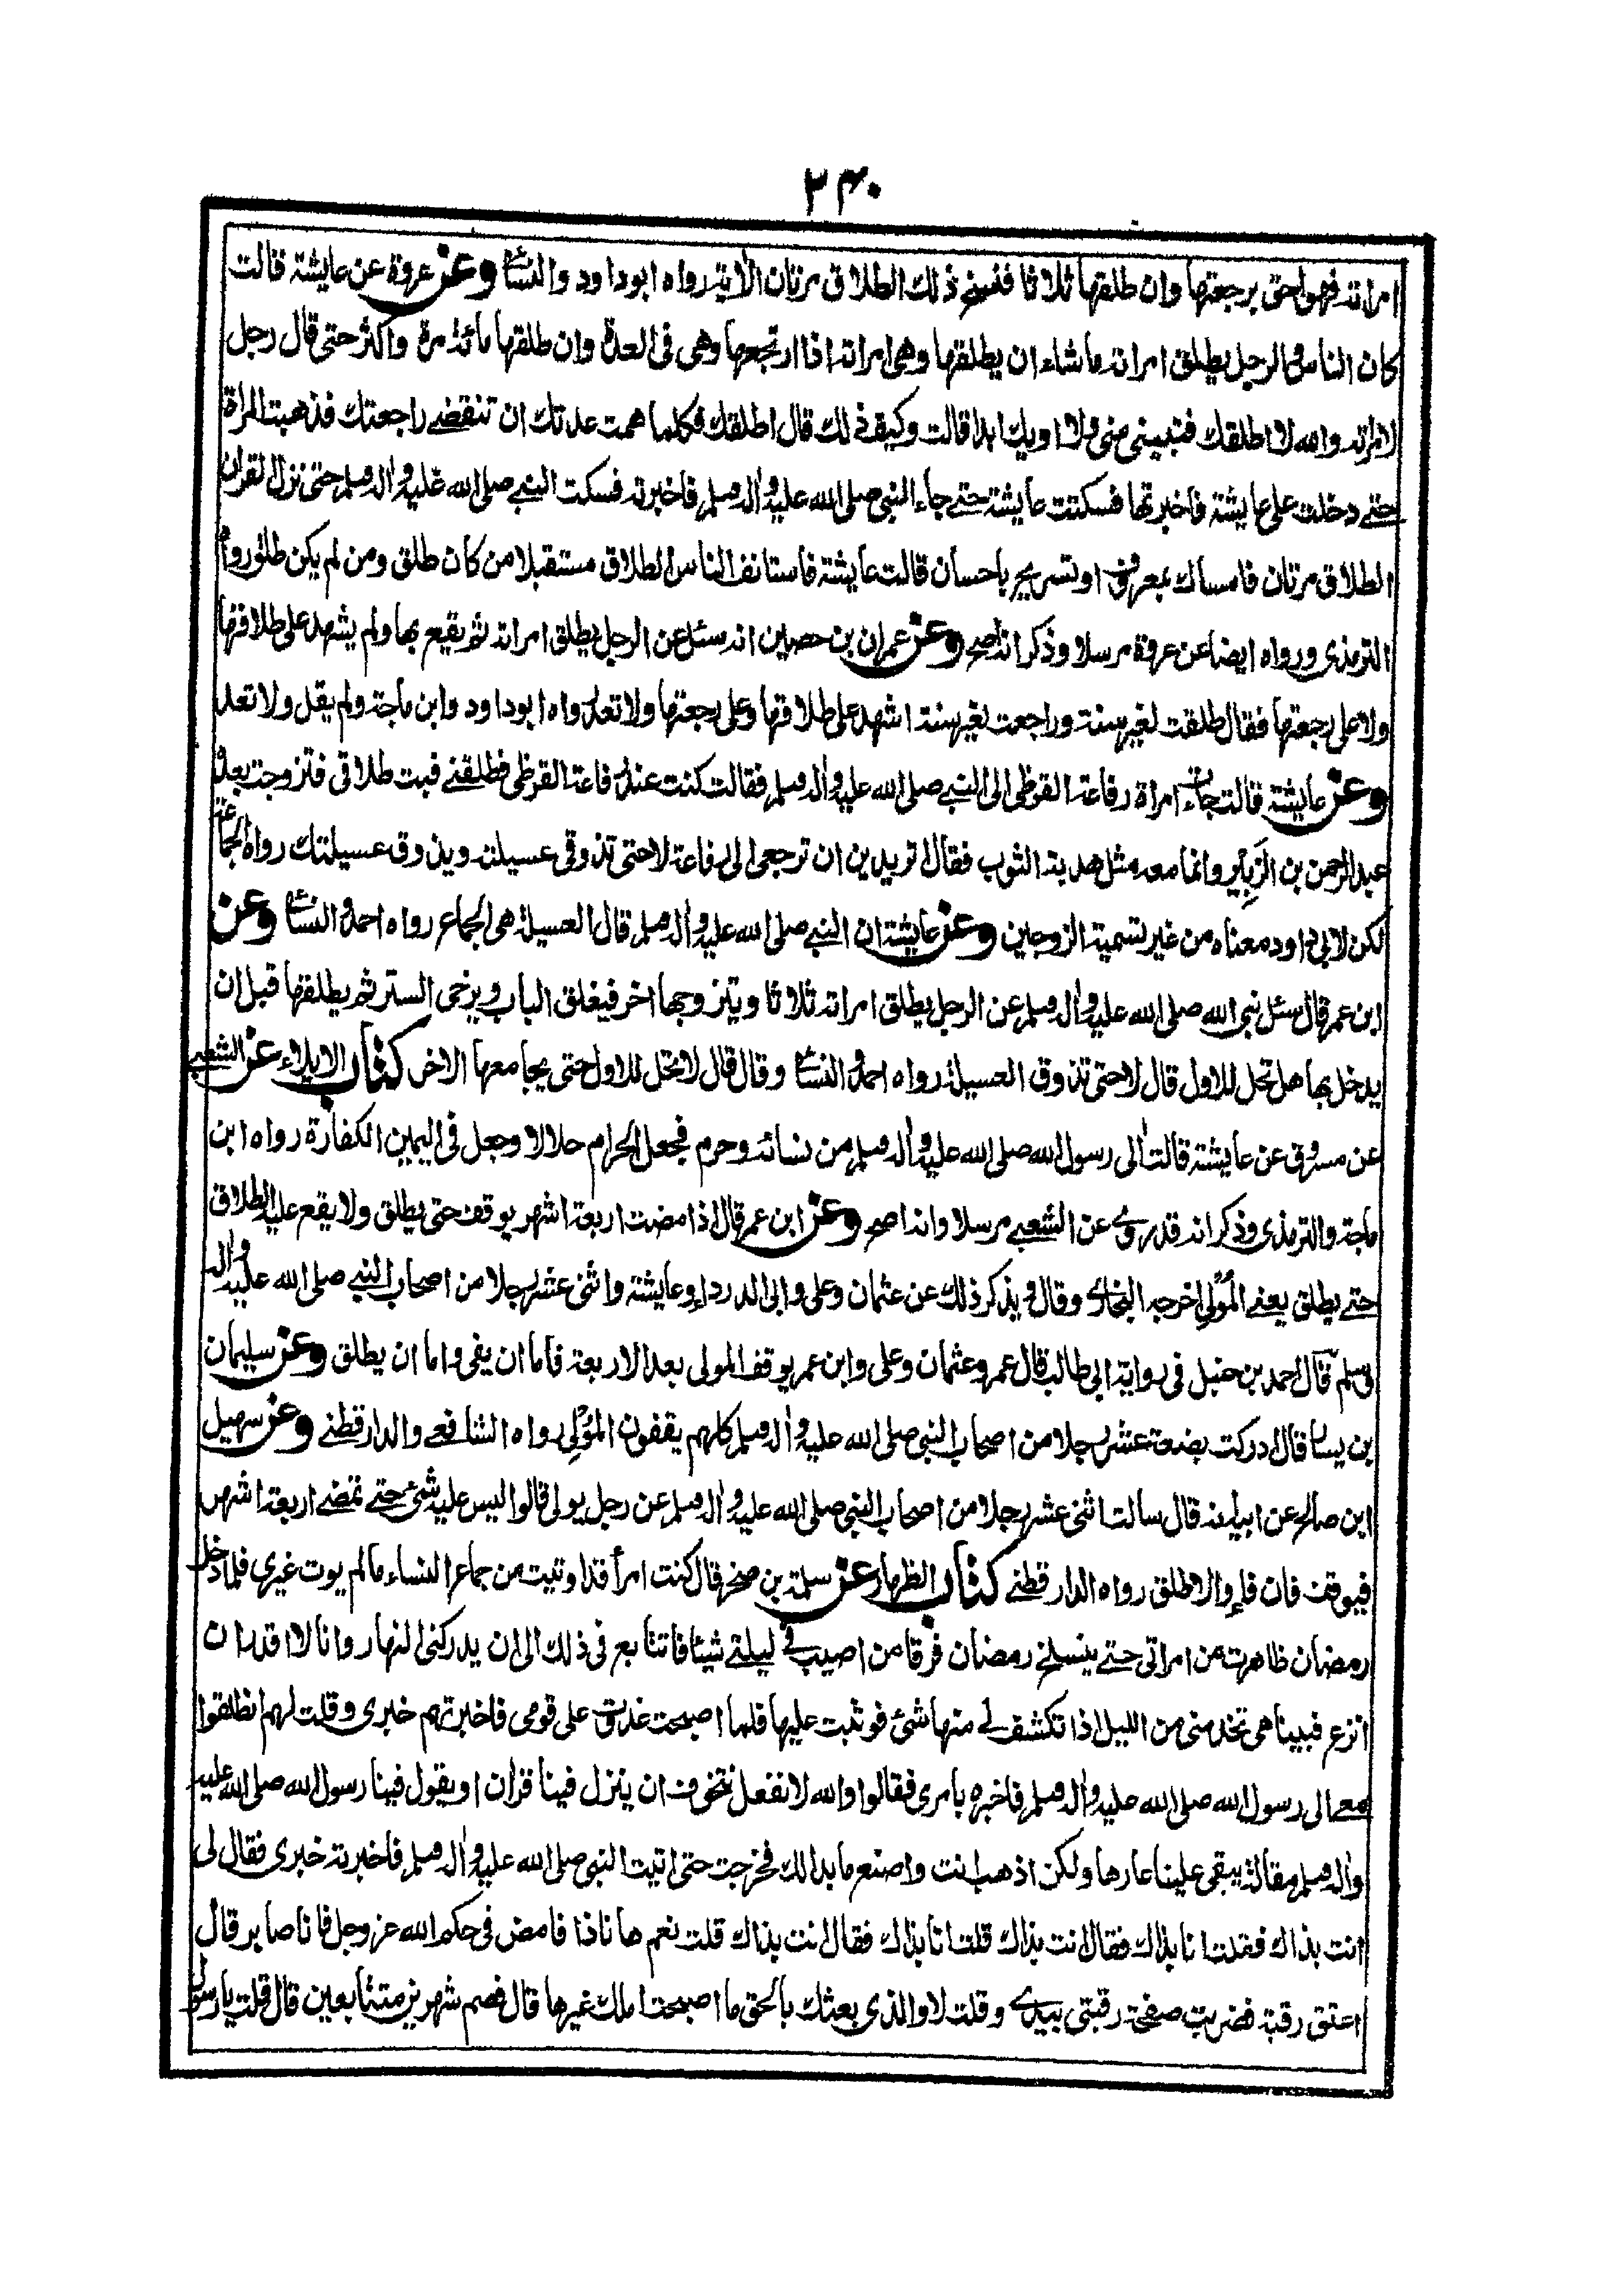 ٢٣٠
امراته فهو احق برجعتها وان طلقها ثلاثا فنسخ ذلك الطلاق مرتان الاية رواه ابوداود والنسائے وعن عروة عن عايشة قالت
كان الناس والرجل يطلق امراته ماشاء ان يطلقها وهى امراته اذا ارتجعها وهى فى العدة وان طلقها مائة مرة واكثر حتى قال رجل
لامراته والله لا اطلقك فتبينى منى ولا اويك ابدا قالت وكيف ذلك قال اطلقك فكلما همت عدتك ان تنقضے راجعتك فذهبت المراة
حتے دخلت على عايشة فاخبرتها فسكتت عايشة حتے جاء النبى صلى الله عليه واله وسلم فاخبرته فسكت النبے صلى الله عليه واله وسلم حتى نزل القران
الطلاق مرتان فامساك بمعروف او تسريح باحسان قالت عايشة فاستانف الناس الطلاق مستقبلا من كان طلق ومن لم يكن طلق رواه
الترمذى ورواه ايضا عن عروة مرسلا وذكر انه اصح وعن عمران بن حصين انه سئل عن الرجل يطلق امراته ثم يقع بها ولم يشهد على طلاقها
ولا على رجعتها فقال طلقت لغير سنة وراجعت لغير سنة اشهد على طلاقها وعلى رجعتها ولا تعد رواه ابوداود وابن ماجة ولم يقل ولا تعد
وعن عايشة قالت جاءت امراة رفاعة القرظى الى النبے صلى الله عليه واله وسلم فقالت كنت عند رفاعة القرظى فطلقنے فبت طلاقى فتزوجت بعده
عبد الرحمن بن الزَبِير وانما معه مثل هدبة الثوب فقال اتريدين ان ترجعى الى رفاعة لا حتى تذوقى عسيلته ويذوق عسيلتك رواه الجماعة
لكن لابى داود معناه من غير تسمية الزوجين وعن عايشة ان النبے صلى الله عليه واله وسلم قال العسيلة هى الجماع رواه احمد والنسائے وعن
ابن عمر قال سئل نبى الله صلى الله عليه واله وسلم عن الرجل يطلق امراته ثلاثا ويتزوجها اخر فيغلق الباب ويرخى الستر ثم يطلقها قبل ان
يدخل بها هل تحل للاول قال لا حتى تذوق العسيلة رواه احمد والنسائے وقال قال لا تحل للاول حتى يجامعها الاخر كتاب الايلاء عن الشعبے
عن مسروق عن عايشة قالت الى رسول الله صلى الله عليه واله وسلم من نسائه وحرم فجعل الحرام حلالا وجعل فى اليمين الكفارة رواه ابن
ماجة والترمذى وذكر انه قد روے عن الشعبے مرسلا وانه اصح وعن ابن عمر قال اذا مضت اربعة اشهر يوقف حتى يطلق ولا يقع عليه الطلاق
حتے يطلق يعنے المُؤلِى اخرجه البخارے وقال ويذكر ذلك عن عثمان وعلى وابى الدرداء وعايشة واثنى عشر رجلا من اصحاب النبے صلى الله عليه واله
وسلم قال احمد بن حنبل فى رواية ابى طالب قال عمر وعثمان وعلى وابن عمر يوقف المولى بعد الاربعة فاما ان يفى واما ان يطلق وعن سليمان
بن يسار قال ادركت بضعة عشر رجلا من اصحاب النبى صلى الله عليه واله وسلم كلهم يقفون المُؤلِى رواه الشافعے والدار قطنے وعن سهيل
ابن صالح عن ابيه انه قال سالت اثنى عشر رجلا من اصحاب النبى صلى الله عليه واله وسلم عن رجل يولى قالوا ليس عليه شئ حتے تمضے اربعة اشهر
فيوقف فان فاء والا طلق رواه الدار قطنے كتاب الظهار عن سلمة بن صخر قال كنت امرأ قد اوتيت من جماع النساء مالم يوت غيرى فلما دخل
رمضان ظاهرت من امراتى حتے ينسلخ رمضان فرقا من اصيب فے ليلتے شيئا فاتتابع فى ذلك الى ان يدركنى النهار وانا لا اقدر ان
انزع فبينا هى تخدمنى من الليل اذا تكشف لے منها شئ فوثبت عليها فلما اصبحت غدوت على قومى فاخبرتهم خبرى وقلت لهم انطلقوا
معى الى رسول الله صلى الله عليه واله وسلم فاخبره بامرى فقالوا والله لا نفعل نتخوف ان ينزل فينا قران او يقول فينا رسول الله صلى الله عليه
واله وسلم مقالة يبقى علينا عارها ولكن اذهب انت واصنع ما بدالك فخرجت حتى اتيت النبى صلى الله عليه واله وسلم فاخبرته خبرى فقال لى
انت بذاك فقلت انا بذاك فقال انت بذاك قلت انا بذاك فقال انت بذاك قلت نعم ها نا ذا فامض فى حكم الله عز وجل فانا صابر قال
اعتق رقبة فضربت صفحة رقبتى بيدے وقلت لا والذى بعثك بالحق ما اصبحت املك غيرها قال فصم شهرين متتابعين قال قلت يا رسول